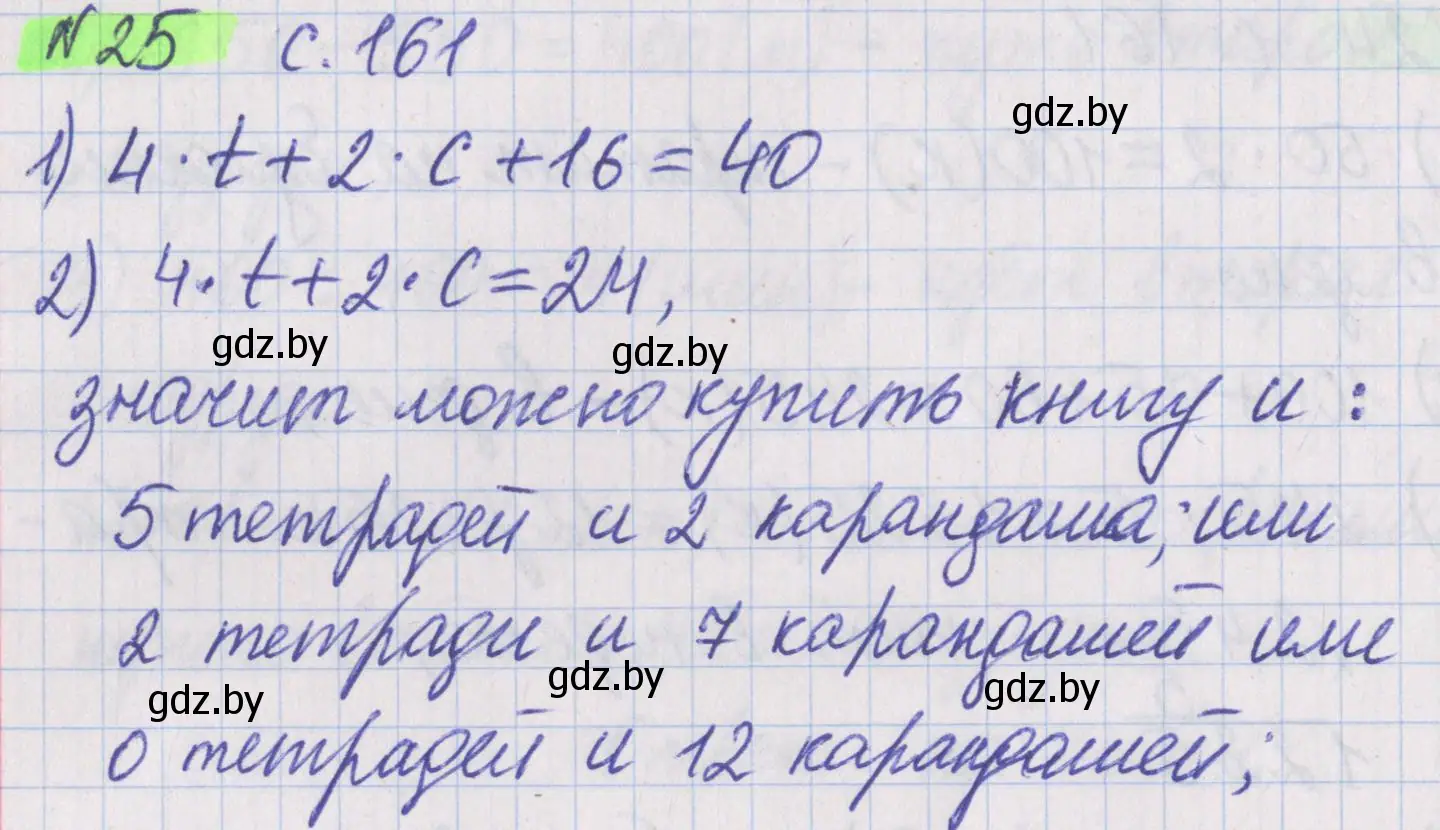 N 25 с. 161
gdz.by
1) 4 · t + 2 · c + 16 = 40
2) 4 · t + 2 · c = 24,
gdz.by gdz.by
значит можно купить книгу и :
5 тетрадей и 2 карандаша, или
2 тетради и 7 карандашей или
gdz.by gdz.by gdz.by
0 тетрадей и 12 карандашей;